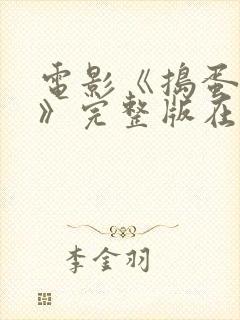 電影《搗蛋
》完整版在
李金羽